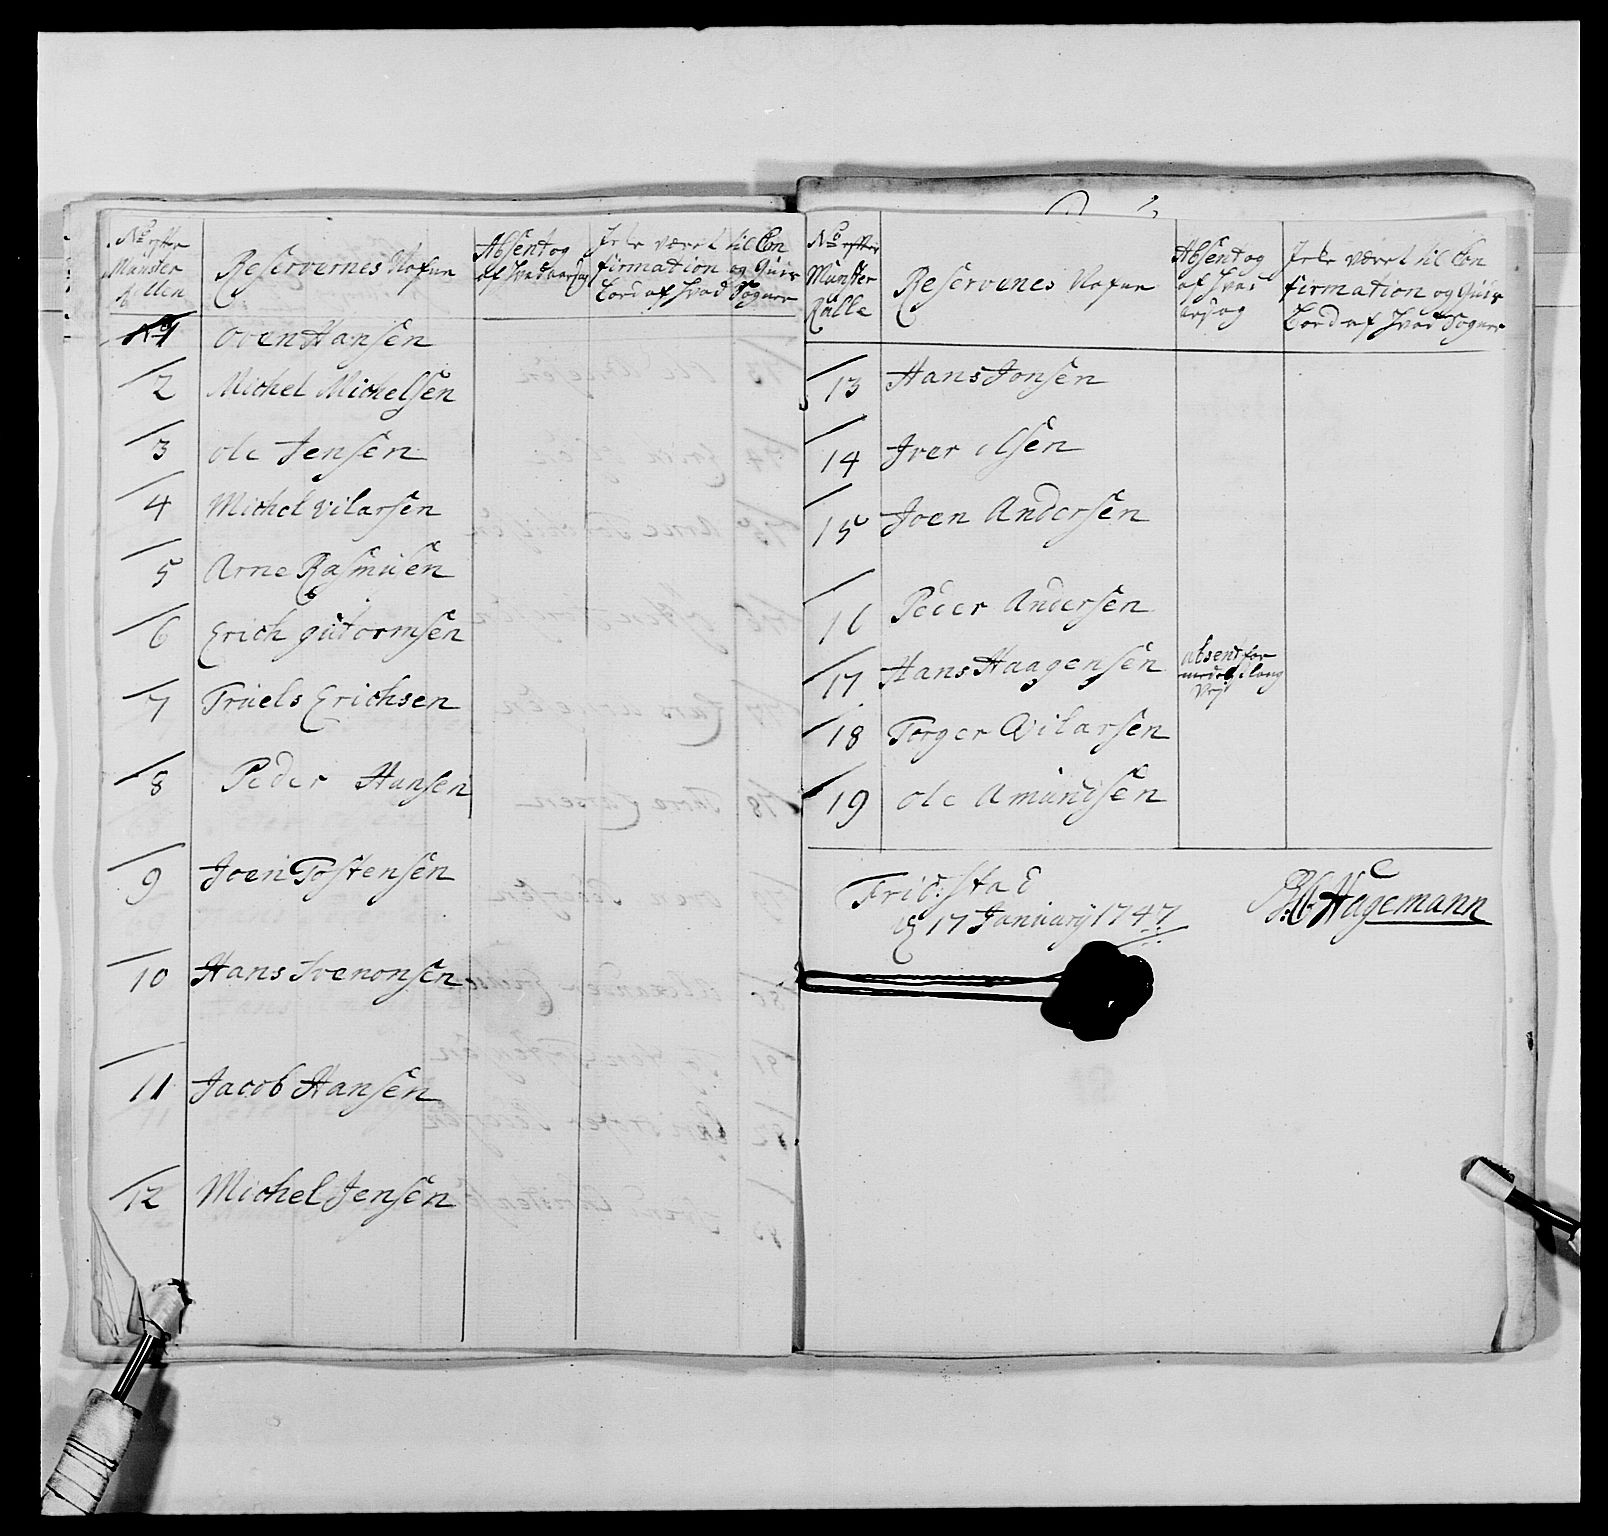 No efter
Munster
Rullen
Reservernes Nafne
Absent og
af hvad aarsag
Icke været til Con
firmation og
af hvad Sogner
No 1 Oven Hansen
2 Michel Michelsen
3 ole Jensen
4 Michel vilarsen
5 Arne Rasmusen
6 Erich gutormsen
7 Truels Erichsen
8 Peder Hansen
9 Joen Tostensen
10 Hans Svenonsen
11 Jacob Hansen
12 Michel Jensen
No efter
Munster
Rulle
Reservenes Nafne
Absent og
af hvad
aarsag
Icke været til Con
firmation og
af hvad Sogner
13 Hans Jonsen
14 Iver olsen
15 Joen Andersen
16 Peder Andersen
17 Hans Haagensen absent for
medelst lang
Vej
18 Torger Vilarsen
19 ole Amundsen
Fridstad
d 17 January 1747
Hagemann